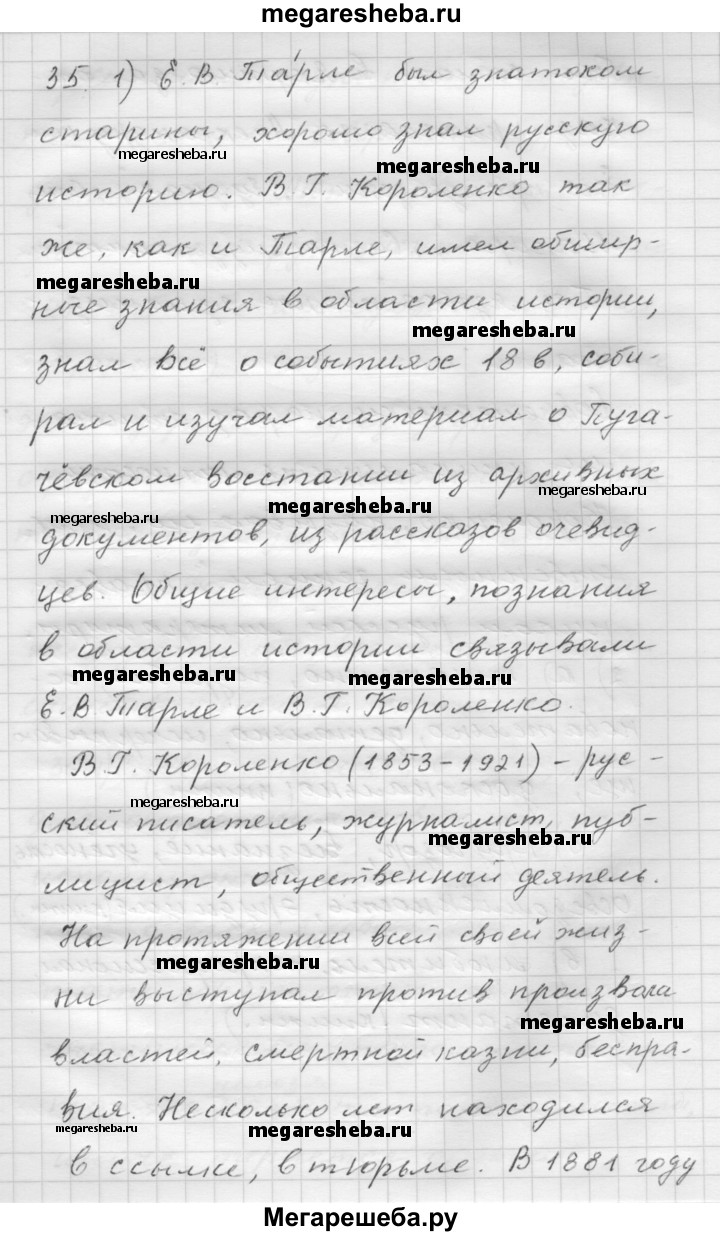 megaresheba.ru
35. 1) Е. В. Та́рле был знатоком
старины, хорошо знал русскую
megaresheba.ru
megaresheba.ru
историю. В. Г. Короленко так
же, как и Тарле, имел обшир-
megaresheba.ru
ные знания в области истории,
megaresheba.ru
знал всё о событиях 18 в, соби-
рал и изучал материал о Пуга-
чёвском восстании из архивных
megaresheba.ru
megaresheba.ru
megaresheba.ru
документов, из рассказов очевид-
цев. Общие интересы, познания
в области истории связывали
megaresheba.ru
megaresheba.ru
Е. В Тарле и В. Г. Короленко.
В. Г. Короленко (1853-1921) - рус-
megaresheba.ru
ский писатель, журналист, пуб-
megaresheba.ru
лицист, общественный деятель.
На протяжении всей своей жиз-
megaresheba.ru
ни выступал против произвола
megaresheba.ru
властей, смертной казни, беспра-
вия. Несколько лет находился
megaresheba.ru
megaresheba.ru
в ссылке, в тюрьме. В 1881 году
Мегарешеба.ру